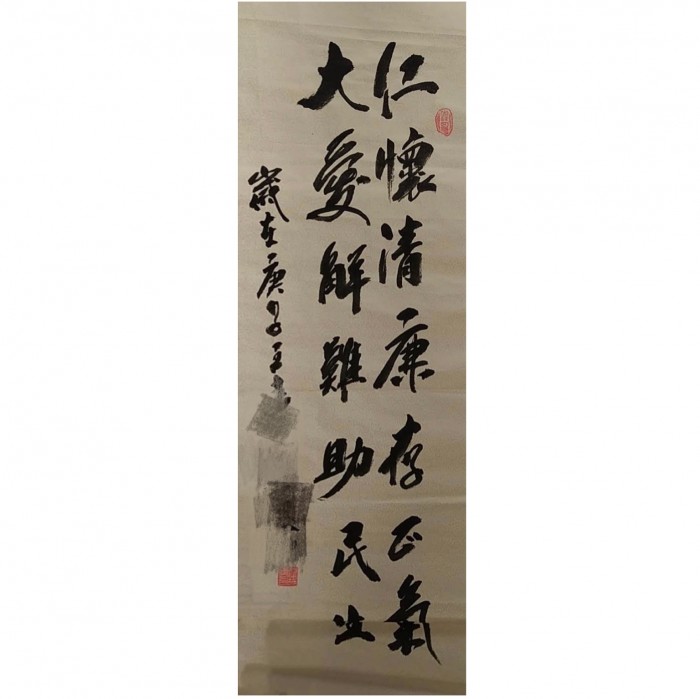 仁懷清廉存正氣
大愛解難助民生
歲在庚子